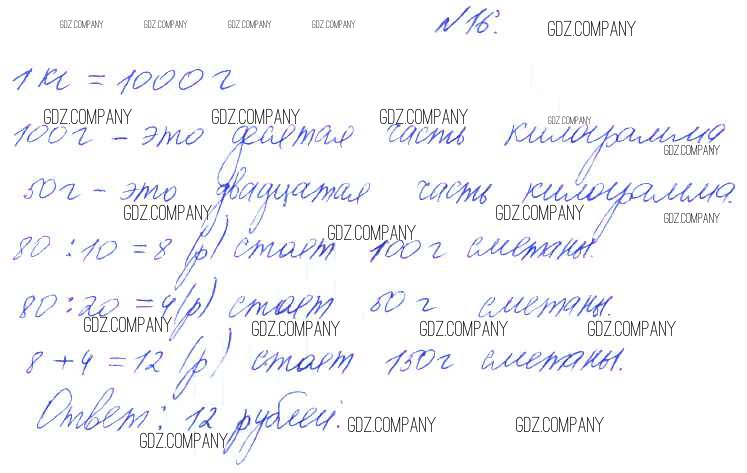 GDZ.COMPANY GDZ.COMPANY GDZ.COMPANY GDZ.COMPANY №16. GDZ.COMPANY
1 кг = 1000 г
GDZ.COMPANY GDZ.COMPANY GDZ.COMPANY GDZ.COMPANY
100г – это десятая часть килограмма
GDZ.COMPANY
50г – это двадцатая часть килограмма.
GDZ.COMPANY GDZ.COMPANY GDZ.COMPANY
GDZ.COMPANY
80 : 10 = 8 (р) стоит 100г сметаны.
80 : 20 = 4 (р) стоит 50 г сметаны.
GDZ.COMPANY GDZ.COMPANY GDZ.COMPANY GDZ.COMPANY
8 + 4 = 12 (р) стоит 150г сметаны.
Ответ: 12 рублей.
GDZ.COMPANY GDZ.COMPANY GDZ.COMPANY